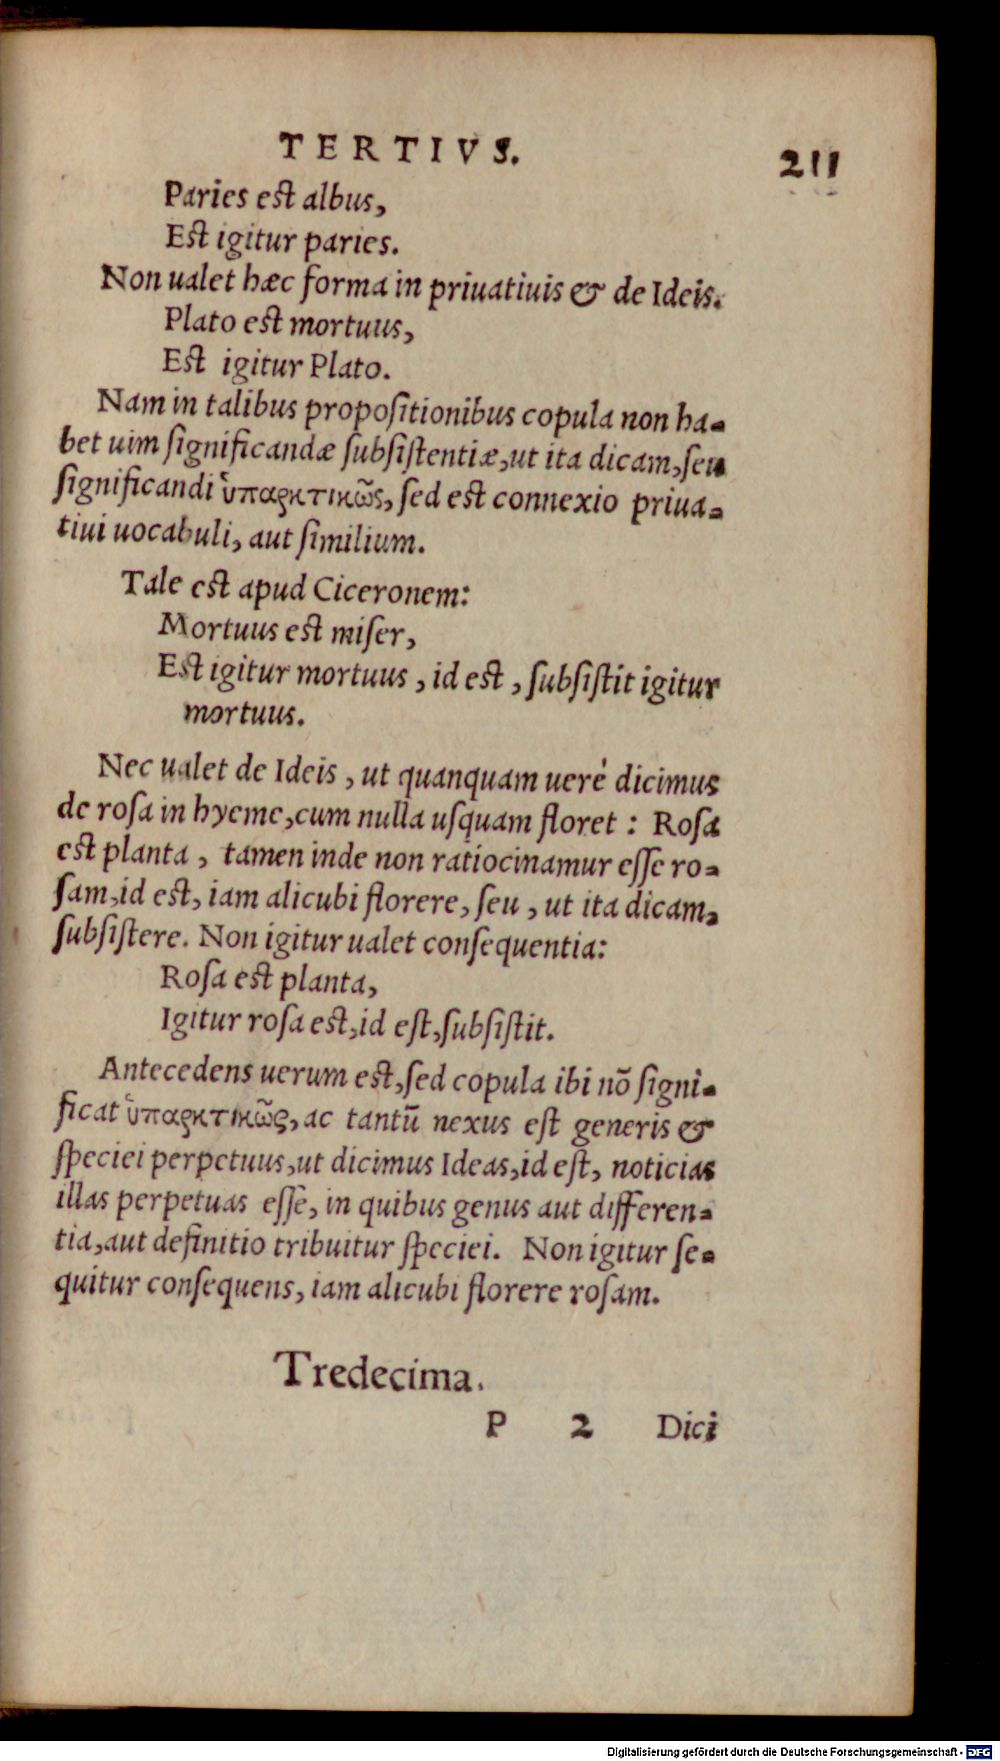 TERTIVS.
211
Paries est albus,
Est igitur paries.
Non ualet hæc forma in priuatiuis & de Ideis.
Plato est mortuus,
Est igitur Plato.
Nam in talibus propoſitionibus copula non ha-
bet uim ſignificandæ ſubſiſtentiæ, ut ita dicam, ſeu
ſignificandi ὑπαρκτικῶς, ſed est connexio priua-
tiui uocabuli, aut ſimilium.
Tale est apud Ciceronem:
Mortuus est miſer,
Est igitur mortuus, id est, ſubſiſtit igitur
mortuus.
Nec ualet de Ideis, ut quanquam uerè dicimus
de roſa in hyeme, cum nulla uſquam floret: Roſa
est planta, tamen inde non ratiocinamur eſſe ro-
ſam, id est, iam alicubi florere, ſeu, ut ita dicam,
ſubſiſtere. Non igitur ualet conſequentia:
Roſa est planta,
Igitur roſa est, id eſt, ſubſiſtit.
Antecedens uerum est, ſed copula ibi nõ ſigni-
ficat ὑπαρκτικῶς, ac tantũ nexus eſt generis &
ſpeciei perpetuus, ut dicimus Ideas, id eſt, noticias
illas perpetuas eſſe, in quibus genus aut differen-
tia, aut definitio tribuitur ſpeciei. Non igitur ſe-
quitur conſequens, iam alicubi florere roſam.
Tredecima.
P 2 Dici
Digitalisierung gefördert durch die Deutsche Forschungsgemeinschaft - DFG